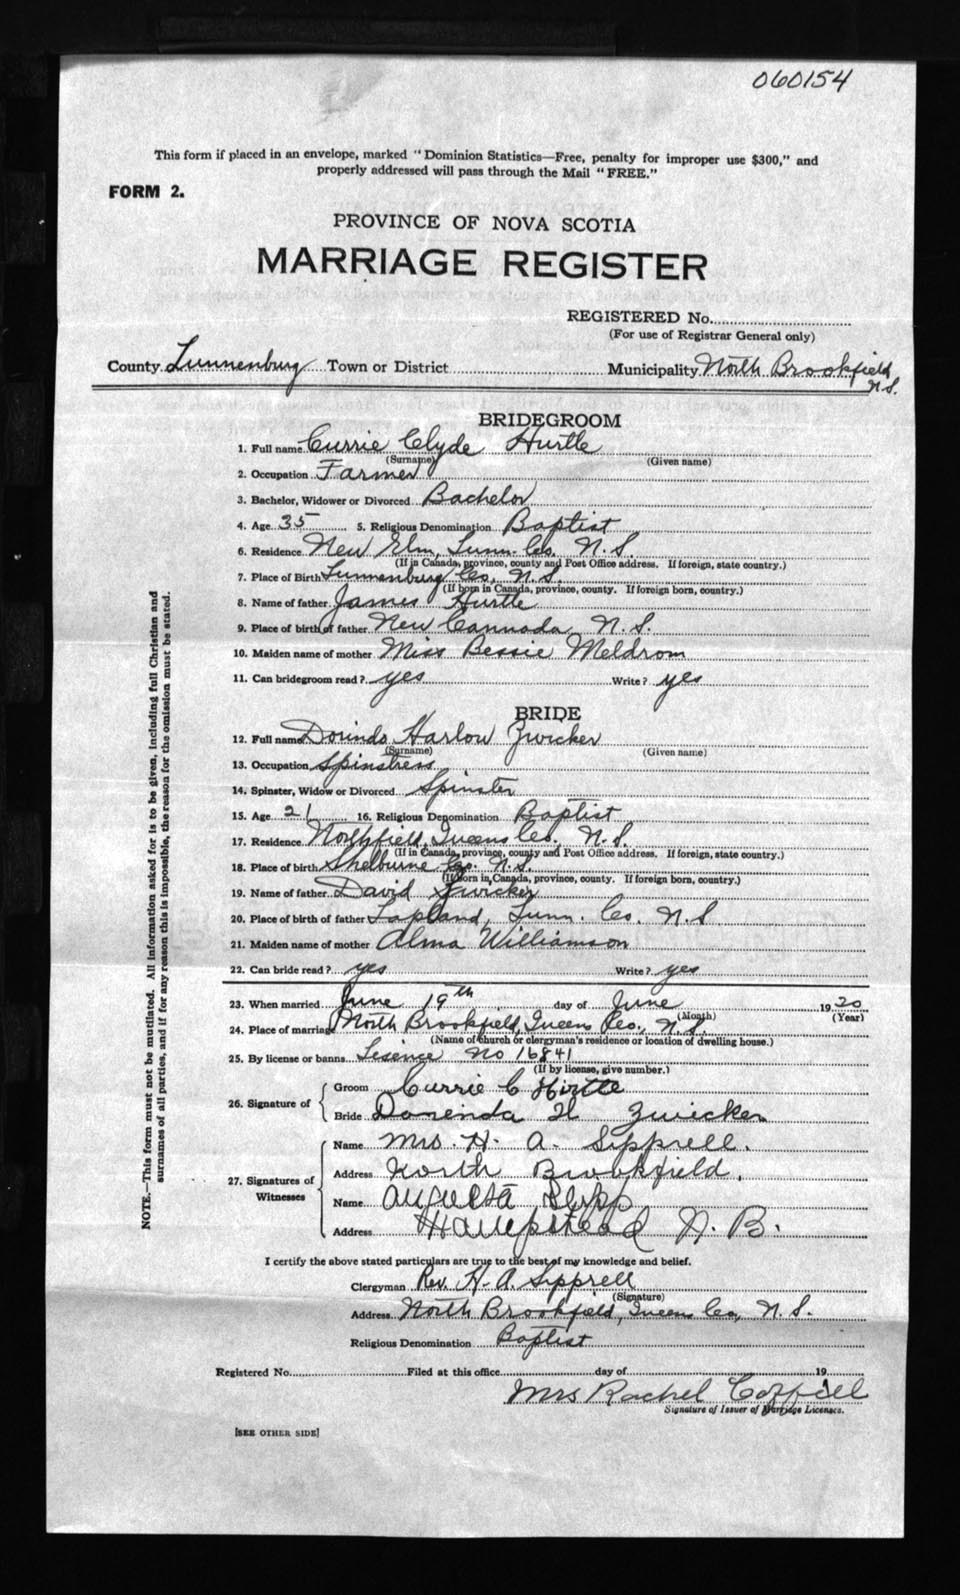 060154
This form if placed in an envelope, marked "Dominion Statistics—Free, penalty for improper use $300," and
properly addressed will pass through the Mail "FREE."
FORM 2.
PROVINCE OF NOVA SCOTIA
MARRIAGE REGISTER
REGISTERED No.
(For use of Registrar General only)
County Lunnenburg Town or District Municipality North Brookfield
N.S.
BRIDEGROOM
1. Full name Currie Clyde Hurtle
(Surname) (Given name)
2. Occupation Farmer
3. Bachelor, Widower or Divorced Bachelor
4. Age 35 5. Religious Denomination Baptist
6. Residence New Elm, Lunn. Co. N.S.
(If in Canada, province, county and Post Office address. If foreign, state country.)
7. Place of Birth Lunnenburg Co, N.S.
(If born in Canada, province, county. If foreign born, country.)
8. Name of father James Hurtle
9. Place of birth of father New Cannada N.S.
10. Maiden name of mother Miss Bessie Meldrom
11. Can bridegroom read? yes Write? yes
BRIDE
12. Full name Dorinda Harlow Zwicker
(Surname) (Given name)
13. Occupation Spinstress
14. Spinster, Widow or Divorced Spinster
15. Age 21 16. Religious Denomination Baptist
17. Residence Northfield, Queens Co, N.S.
(If in Canada, province, county and Post Office address. If foreign, state country.)
18. Place of birth Shelburne Co. N.S.
(If born in Canada, province, county. If foreign born, country.)
19. Name of father David Zwicker
20. Place of birth of father Lapland, Lunn. Co. N.S
21. Maiden name of mother Alma Williamson
22. Can bride read? yes Write? yes
23. When married June 19th day of June 1920
(Month) (Year)
24. Place of marriage North Brookfield, Queens Co., N.S.
(Name of church or clergyman's residence or location of dwelling house.)
25. By license or banns Lisence No 16841
(If by license, give number.)
26. Signature of
Groom Currie C Hirtle
Bride Dorenda H Zwicker
27. Signatures of Witnesses
Name Mrs. H. A. Sipprell.
Address North Brookfield,
Name Augusta Slipp
Address Hampstead N.B.
I certify the above stated particulars are true to the best of my knowledge and belief.
Clergyman Rev. H. A. Sipprell
(Signature)
Address North Brookfield, Queens Co, N.S.
Religious Denomination Baptist
Registered No. Filed at this office day of 19
Mrs Rachel
Signature of Issuer of Marriage Licenses.
[SEE OTHER SIDE]
NOTE.—This form must not be mutilated. All information asked for is to be given, including full Christian and
surnames of all parties, and if for any reason this is impossible, the reason for the omission must be stated.